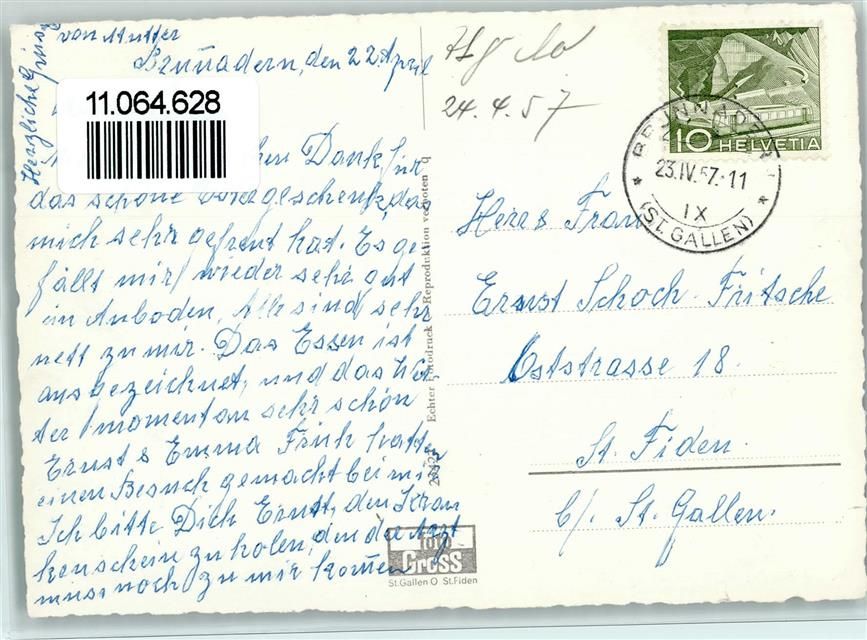 Herzliche Grüsse
von Mutter
Brunnadern, den 22. April
11.064.628
chen Dank für
das schöne Ostergeschenk, das
mich sehr gefreut hat. Es ge-
fällt mir wieder sehr gut
im Anboden, Alle sind sehr
nett zu mir. Das Essen ist
ausgezeichnet, und das Wet-
ter momentan sehr schön
Ernst & Emma Frick hatten
einen Besuch gemacht bei mir
Ich bitte Dich Ernst, den Kran
kenschein zu holen, den der Arzt
muss noch zu mir kommen
24.4.57
HELVETIA
10
BRUNNADERN
23.IV.57.-11
IX
(ST. GALLEN)
Herrs Frau
Ernst Schoch-Fritsche
Oststrasse 18.
St. Fiden.
b/. St. Gallen.
Echter Fotodruck Reproduktion verboten
foto
Gross
St.Gallen O St.Fiden